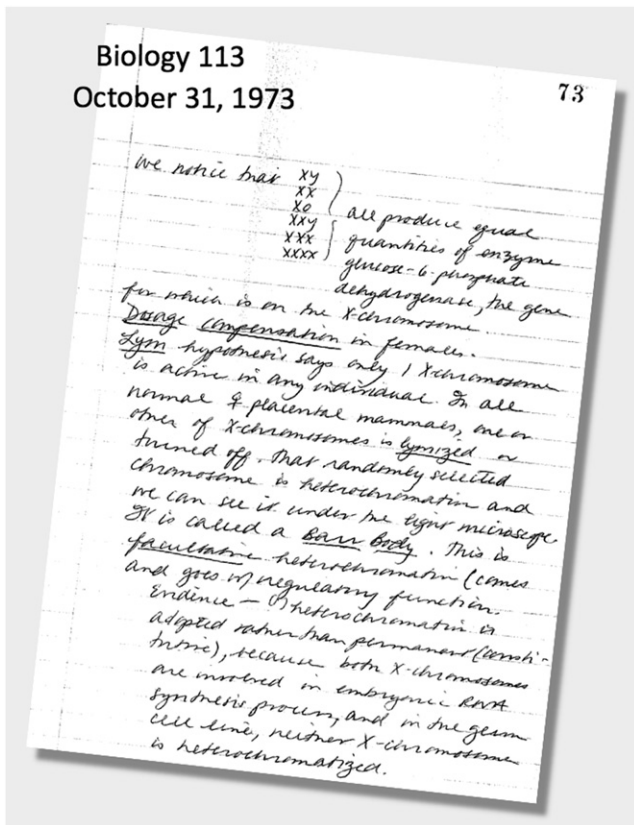 Biology 113
October 31, 1973
73
We notice that xy
xx
xo
xxy
xxx
xxxx
all produce equal
quantities of enzyme
glucose-6-phosphate
dehydrogenase, the gene
for which is on the X-chromosome.
Dosage compensation in females.
Lyon hypothesis says only 1 X-chromosome
is active in any individual. In all
normal ♀ placental mammals, one or
other of X-chromosomes is lyonized or
turned off. That randomly selected
chromosome is heterochromatin and
we can see it under the light microscope.
It is called a Barr Body. This is
facultative heterochromatin (comes
and goes w/ regulatory function.
Evidence – 1) heterochromatin is
adopted rather than permanent (consti-
tutive), because both X-chromosomes
are involved in embryonic RNA
synthesis process, and in the germ
cell line, neither X-chromosome
is heterochromatized.